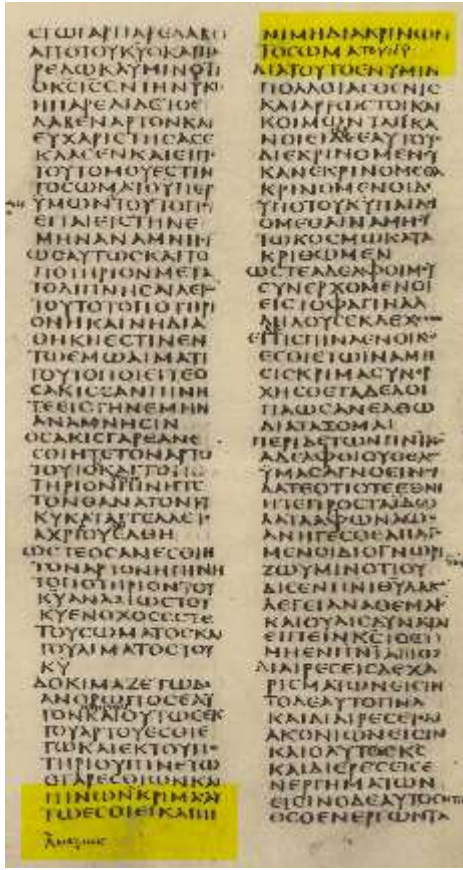 ΕΓΩΓΑΡΠΑΡΕΛΑΒΟ
ΑΠΟΤΟΥΚΥΟΚΑΙΠΑ
ΡΕΔΩΚΑΥΜΙΝΟΤΙ
ΟΚϹΙϹΕΝΤΗΝΥΚΤΙ
ΛΑΒΕΝΑΡΤΟΝΚΑΙ
ΕΥΧΑΡΙϹΤΗϹΑϹΕ
ΚΛΑϹΕΝΚΑΙΕΙΠΕ
ΤΟΥΤΟΜΟΥΕϹΤΙΝ
ΤΟϹΩΜΑΤΟΥΠΕΡ
ΥΜΩΝΤΟΥΤΟΠΟΙ
ΕΙΤΑΙΕΙϹΤΗΝΕ
ΜΗΝΑΝΑΜΝΗϹΙ
ΩϹΑΥΤΩϹΚΑΙΤΟ
ΠΟΤΗΡΙΟΝΜΕΤΑ
ΤΟΔΙΠΝΗϹΑΙΛΕΓ
ΤΟΥΤΟΤΟΠΟΤΗΡΙ
ΟΝΗΚΑΙΝΗΔΙΑ
ΘΗΚΗΕϹΤΙΝΕΝ
ΤΩΕΜΩΑΙΜΑΤΙ
ΤΟΥΤΟΠΟΙΕΙΤΕΟ
ϹΑΚΙϹΕΑΝΠΙΝΗ
ΤΕΕΙϹΤΗΝΕΜΗΝ
ΑΝΑΜΝΗϹΙΝ
ΟϹΑΚΙϹΓΑΡΕΑΝΕ
ϹΘΙΗΤΕΤΟΝΑΡΤΟ
ΤΟΥΤΟΚΑΙΤΟΠΟ
ΤΗΡΙΟΝΠΙΝΗΤΕ
ΤΟΝΘΑΝΑΤΟΝΤΟΥ
ΚΥΚΑΤΑΓΓΕΛΛΕΤΕ
ΑΧΡΙΟΥΕΛΘΗ
ΩϹΤΕΟϹΑΝΕϹΘΙΗ
ΤΟΝΑΡΤΟΝΗΠΙΝΗ
ΤΟΠΟΤΗΡΙΟΝΤΟΥ
ΚΥΑΝΑΞΙΩϹΤΟΥ
ΚΥΕΝΟΧΟϹΕϹΤΕ
ΤΟΥϹΩΜΑΤΟϹΚΑΙ
ΤΟΥΑΙΜΑΤΟϹΤΟΥ
ΚΥ
ΔΟΚΙΜΑΖΕΤΩΔΕ
ΑΝΘΡΩΠΟϹΕΑΥ
ΤΟΝΚΑΙΟΥΤΩϹΕΚ
ΤΟΥΑΡΤΟΥΕϹΘΙΕ
ΤΩΚΑΙΕΚΤΟΥΠΟ
ΤΗΡΙΟΥΠΙΝΕΤΩ
ΟΓΑΡΕϹΘΙΩΝΚΑΙ
ΠΙΝΩΝΚΡΙΜΑΕΑΥ
ΤΩΕϹΘΙΕΙΚΑΙΠΙ
ΝΙΜΗΔΙΑΚΡΙΝΩΝ
ΤΟϹΩΜΑ
ΔΙΑΤΟΥΤΟΕΝΥΜΙΝ
ΠΟΛΛΟΙΑϹΘΕΝΙϹ
ΚΑΙΑΡΡΩϹΤΟΙΚΑΙ
ΚΟΙΜΩΝΤΑΙΙΚΑ
ΝΟΙΕΙΔΕΕΑΥΤΟΥϹ
ΔΙΕΚΡΙΝΟΜΕΝΟΥ
ΚΑΝΕΚΡΙΝΟΜΕΘΑ
ΚΡΙΝΟΜΕΝΟΙΔΕ
ΥΠΟΤΟΥΚΥΠΑΙΔΕΥ
ΟΜΕΘΑΙΝΑΜΗϹΥ
ΤΩΚΟϹΜΩΚΑΤΑ
ΚΡΙΘΩΜΕΝ
ΩϹΤΕΑΔΕΛΦΟΙΜΟΥ
ϹΥΝΕΡΧΟΜΕΝΟΙ
ΕΙϹΤΟΦΑΓΙΝΑΛ
ΛΗΛΟΥϹΕΚΔΕΧΕϹΘΕ
ΕΙΤΙϹΠΙΝΑΕΝΟΙΚΩ
ΕϹΘΙΕΤΩΙΝΑΜΗ
ΕΙϹΚΡΙΜΑϹΥΝΕΡ
ΧΗϹΘΕΤΑΔΕΛΟΙ
ΠΑΩϹΑΝΕΛΘΩ
ΔΙΑΤΑΞΟΜΑΙ
ΠΕΡΙΔΕΤΩΝΠΝΙΚΩ
ΑΔΕΛΦΟΙΟΥΘΕΛΩ
ΥΜΑϹΑΓΝΟΕΙΝ
ΟΙΔΑΤΕΟΤΙΟΤΕΕΘΝΗ
ΗΤΕΠΡΟϹΤΑΙΔΩ
ΛΑΤΑΑΦΩΝΑΩϹ
ΑΝΗΓΕϹΘΕΑΠΑΓΟ
ΜΕΝΟΙΔΙΟΓΝΩΡΙ
ΖΩΥΜΙΝΟΤΙΟΥ
ΔΙϹΕΝΠΝΙΘΥΛΑΛ
ΛΕΓΕΙΑΝΑΘΕΜΑΙϹ
ΚΑΙΟΥΔΙϹΔΥΝΑΤΑΙ
ΕΙΠΕΙΝΚϹΙϹΕΙ
ΜΗΕΝΠΝΙΑΓΙΩ
ΔΙΑΙΡΕϹΕΙϹΔΕΧΑ
ΡΙϹΜΑΤΩΝΕΙϹΙΝ
ΤΟΔΕΑΥΤΟΠΝΑ
ΚΑΙΔΙΑΙΡΕϹΕΙϹΔΙ
ΑΚΟΝΙΩΝΕΙϹΙΝ
ΚΑΙΟΑΥΤΟϹΚϹ
ΚΑΙΔΙΕΡΕϹΕΙϹΕ
ΝΕΡΓΗΜΑΤΩΝ
ΕΙϹΙΝΟΔΕΑΥΤΟϹ
ΘϹΟΕΝΕΡΓΩΝΤΑ